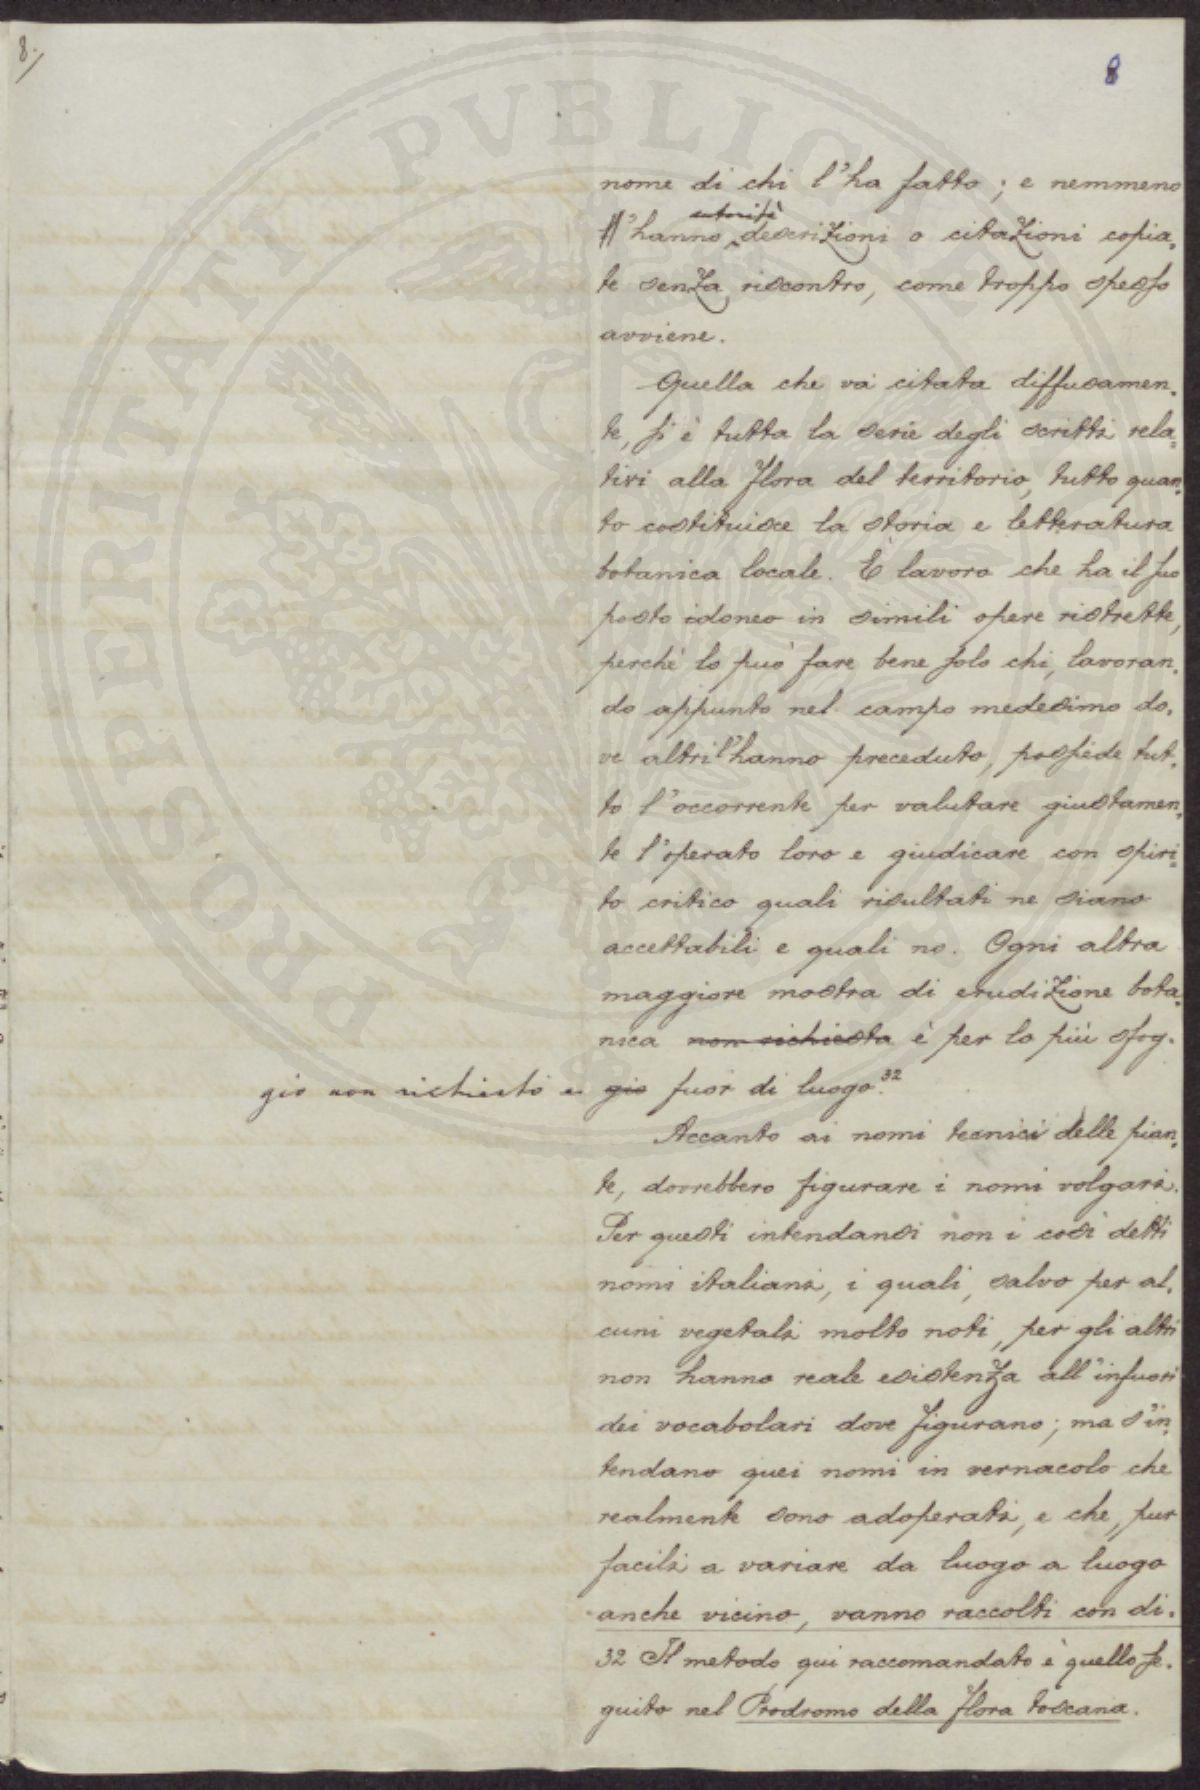 8.
8
PROSPERITATI PVBLICAE
nome di chi l'ha fatto; e nemmeno
l'hanno autorità descrizioni o citazioni copia-
te senza riscontro, come troppo spesso
avviene.
Quella che va citata diffusamen-
te, si è tutta la serie degli scritti rela-
tivi alla flora del territorio, tutto quan-
to costituisce la storia e letteratura
botanica locale. È lavoro che ha il suo
posto idoneo in simili opere ristrette,
perchè lo può fare bene solo chi, lavoran-
do appunto nel campo medesimo do-
ve altri l'hanno preceduto, possiede tut-
to l'occorrente per valutare giustamen-
te l'operato loro e giudicare con spiri-
to critico quali risultati ne siano
accettabili e quali no. Ogni altra
maggiore mostra di erudizione bota-
nica non richiesta è per lo più sfog-
gio non richiesto e gio fuor di luogo.32
Accanto ai nomi tecnici delle pian-
te, dovrebbero figurare i nomi volgari.
Per questi intendansi non i così detti
nomi italiani, i quali, salvo per al-
cuni vegetali molto noti, per gli altri
non hanno reale esistenza all'infuori
dei vocabolari dove figurano; ma s'in-
tendano quei nomi in vernacolo che
realmente sono adoperati, e che, pur
facili a variare da luogo a luogo
anche vicino, vanno raccolti con di-
32 Il metodo qui raccomandato è quello se-
guito nel Prodromo della flora toscana.